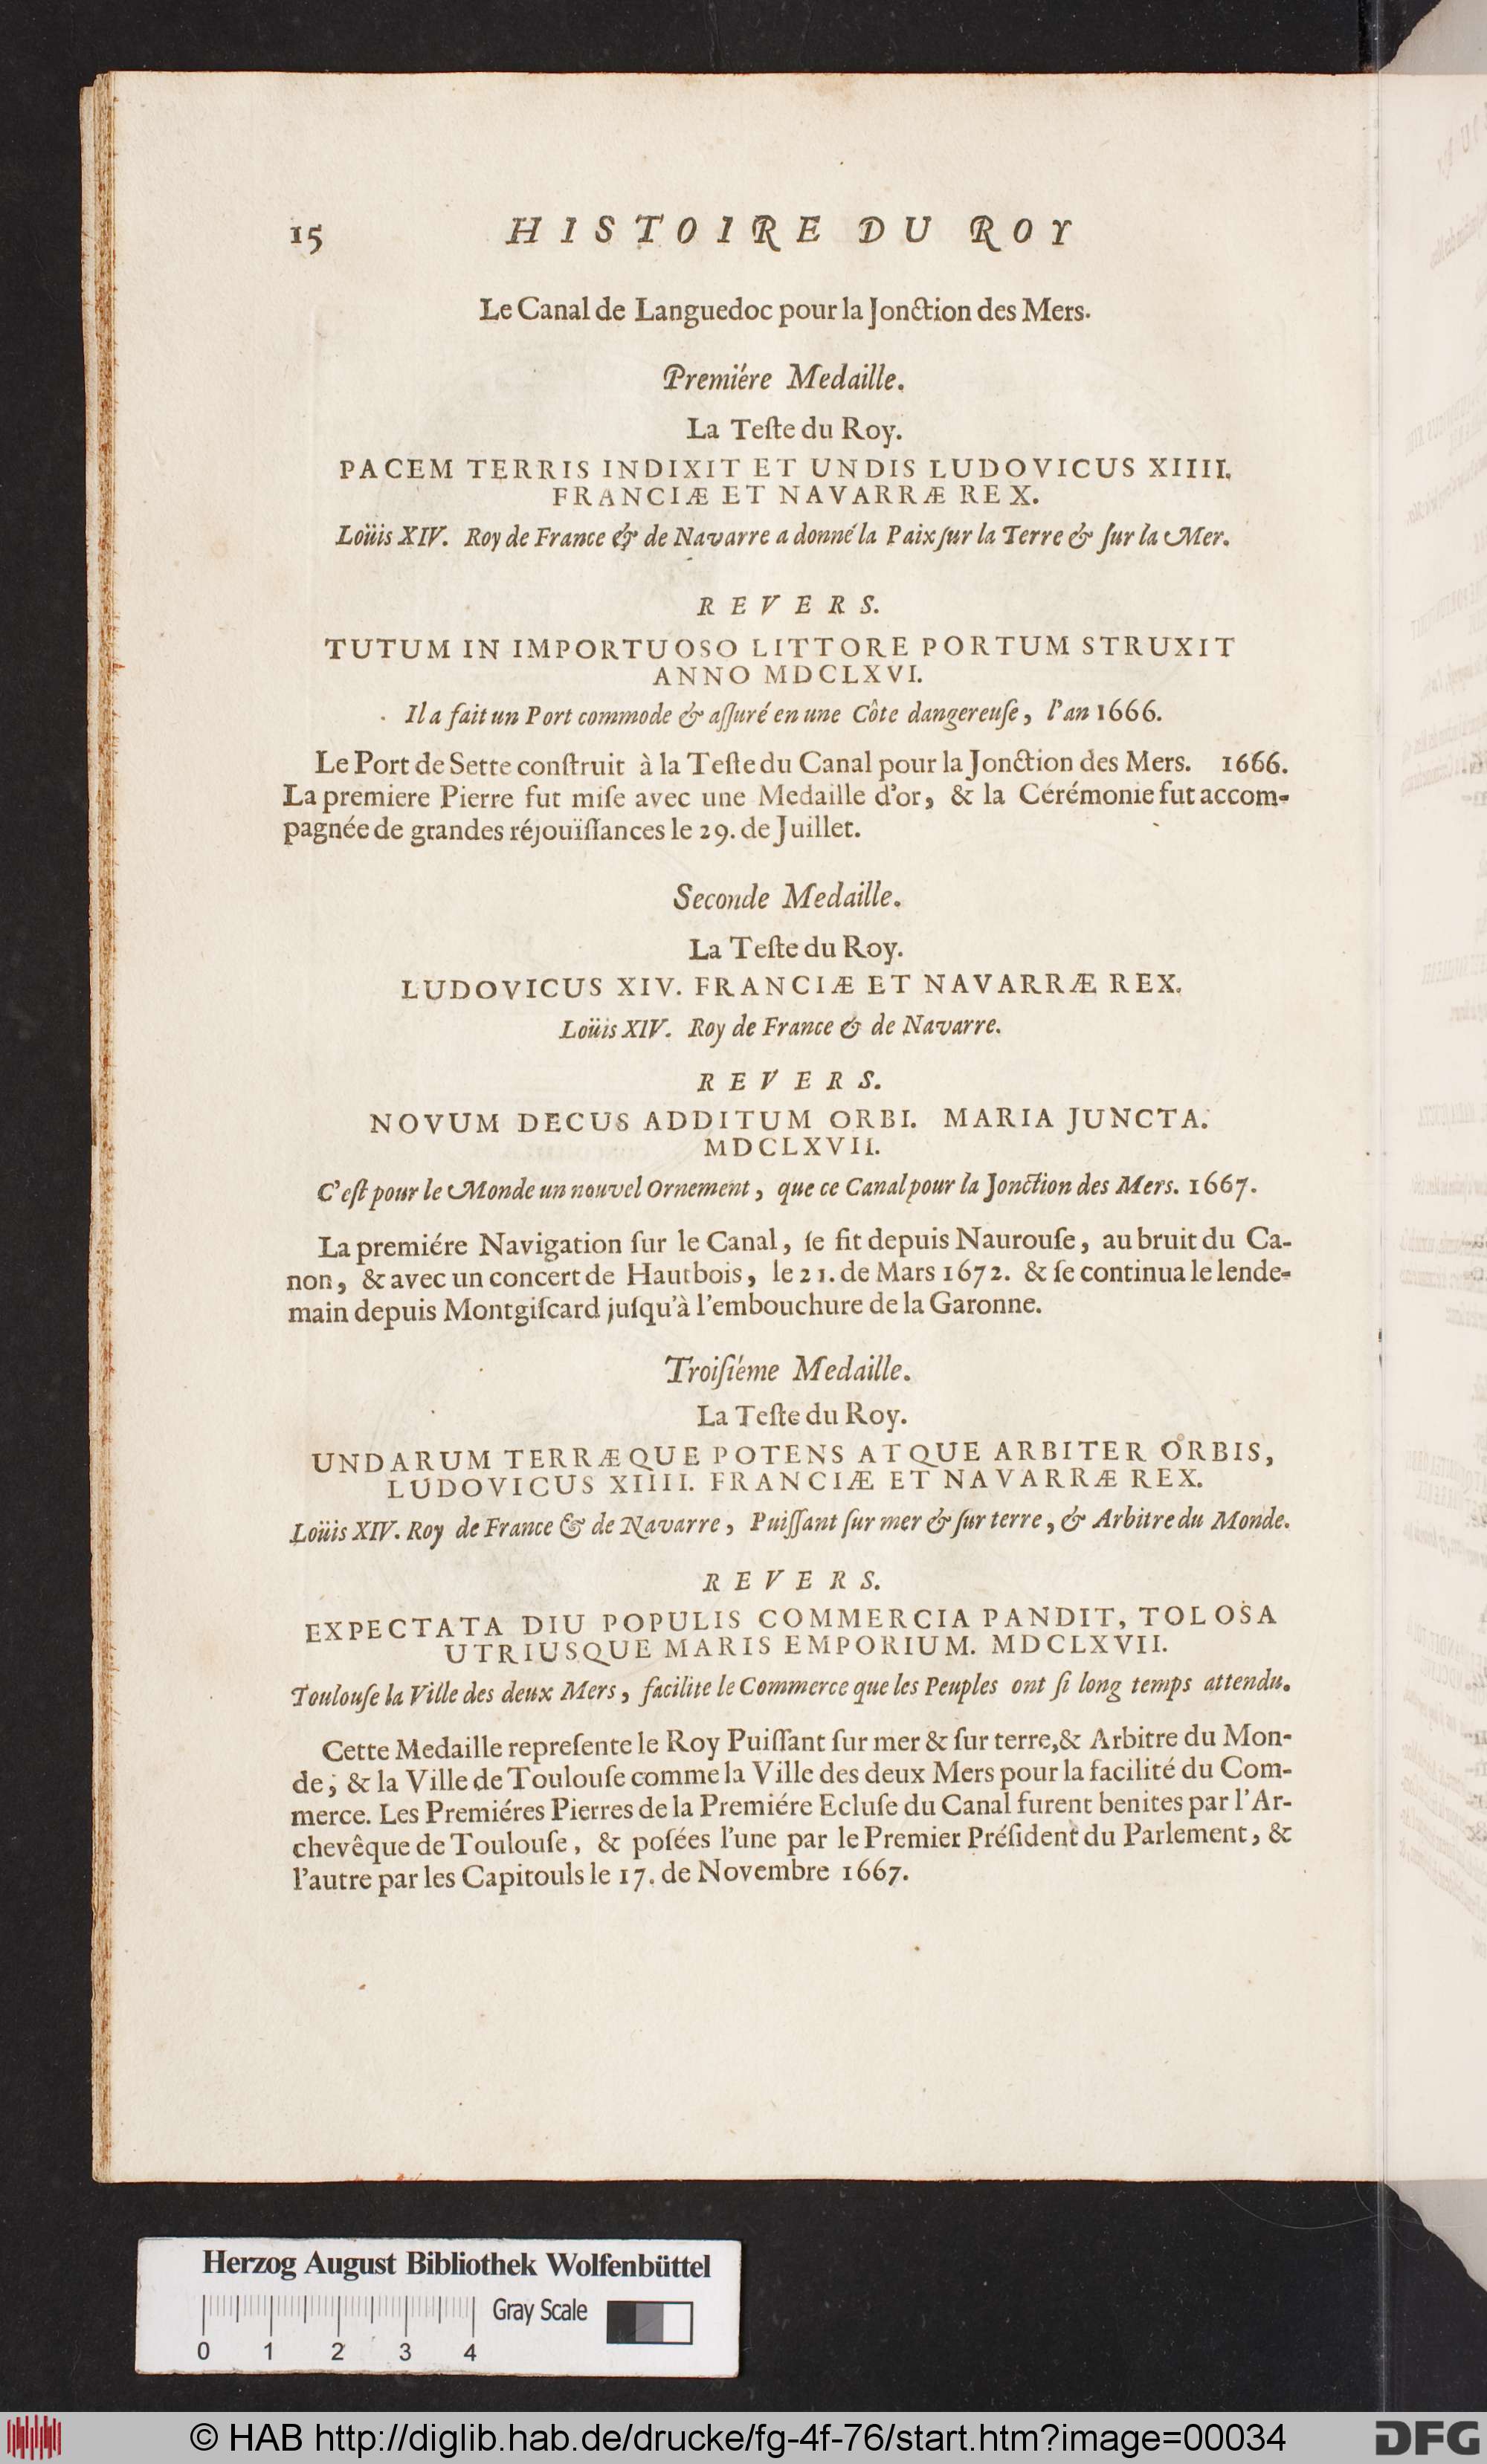 15 HISTOIRE DU ROY
Le Canal de Languedoc pour la Jonction des Mers.
Premiére Medaille.
La Teſte du Roy.
PACEM TERRIS INDIXIT ET UNDIS LUDOVICUS XIIII.
FRANCIÆ ET NAVARRÆ REX.
Loüis XIV. Roy de France & de Navarre a donné la Paix ſur la Terre & ſur la Mer.
REVERS.
TUTUM IN IMPORTUOSO LITTORE PORTUM STRUXIT
ANNO MDCLXVI.
Il a fait un Port commode & aſſuré en une Côte dangereuſe, l'an 1666.
Le Port de Sette conſtruit à la Teſte du Canal pour la Jonction des Mers. 1666.
La premiere Pierre fut miſe avec une Medaille d'or, & la Cérémonie fut accom-
pagnée de grandes réjouïſſances le 29. de Juillet.
Seconde Medaille.
La Teſte du Roy.
LUDOVICUS XIV. FRANCIÆ ET NAVARRÆ REX.
Loüis XIV. Roy de France & de Navarre.
REVERS.
NOVUM DECUS ADDITUM ORBI. MARIA JUNCTA.
MDCLXVII.
C'eſt pour le Monde un nouvel Ornement, que ce Canal pour la Jonction des Mers. 1667.
La premiére Navigation ſur le Canal, ſe fit depuis Naurouſe, au bruit du Ca-
non, & avec un concert de Hautbois, le 21. de Mars 1672. & ſe continua le lende-
main depuis Montgiſcard juſqu'à l'embouchure de la Garonne.
Troiſiéme Medaille.
La Teſte du Roy.
UNDARUM TERRÆQUE POTENS ATQUE ARBITER ORBIS,
LUDOVICUS XIIII. FRANCIÆ ET NAVARRÆ REX.
Loüis XIV. Roy de France & de Navarre, Puiſſant ſur mer & ſur terre, & Arbitre du Monde.
REVERS.
EXPECTATA DIU POPULIS COMMERCIA PANDIT, TOLOSA
UTRIUSQUE MARIS EMPORIUM. MDCLXVII.
Toulouſe la Ville des deux Mers, facilite le Commerce que les Peuples ont ſi long temps attendu.
Cette Medaille repreſente le Roy Puiſſant ſur mer & ſur terre, & Arbitre du Mon-
de; & la Ville de Toulouſe comme la Ville des deux Mers pour la facilité du Com-
merce. Les Premiéres Pierres de la Premiére Ecluſe du Canal furent benites par l'Ar-
chevêque de Toulouſe, & poſées l'une par le Premier Préſident du Parlement, &
l'autre par les Capitouls le 17. de Novembre 1667.
Herzog August Bibliothek Wolfenbüttel
Gray Scale
0 1 2 3 4
© HAB http://diglib.hab.de/drucke/fg-4f-76/start.htm?image=00034
DFG